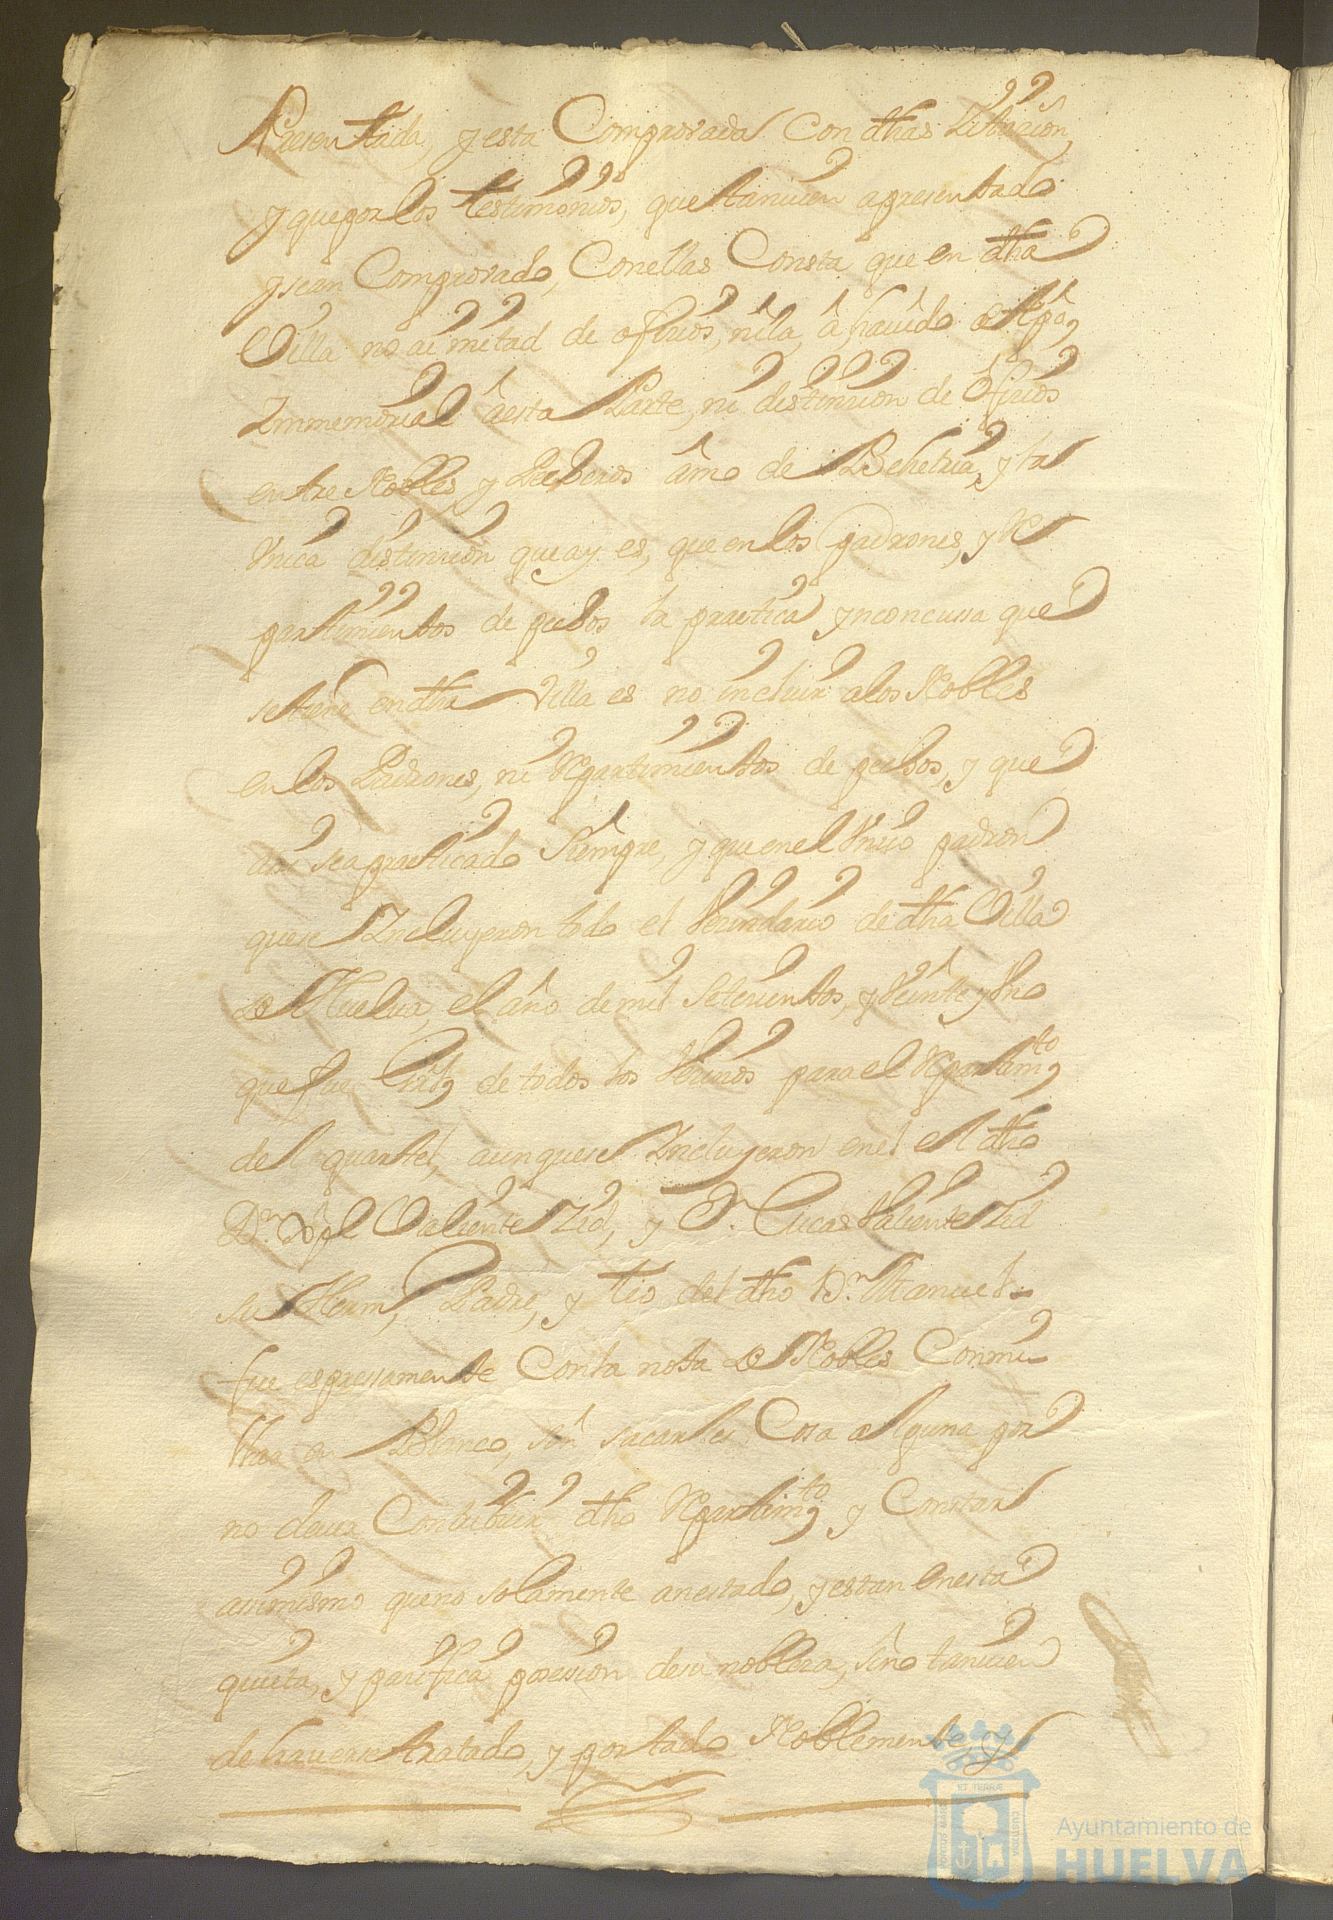 Presentada, y esta Comprovada Con dthas
y que por los testimonios, que tanuien a presentado
y sean Comprovado, Con ellas Consta que en dtha
Villa no ai mitad de oficios, ni la â hauido
Immemorial âesta Parte, ni distinzion de ôficios
entre Nobles, y Pecheros âmo de Behetria, y la
Vnica distinzion que ay es, que en los padrones, y Re
partimientos de pechos la practica ynconcussa que
se tiene en dtha Villa es no incluir a los Nobles
en los Padrones, ni Repartimientos de pechos, y que
assi sea practicado siempre, y que en el Vnico padron
que se Incluyeron todo el Vezindario de dtha Villa
de Huelva, el año de mil setezientos, y Veinte y Vno
que fue de todos los Vezinos para el Repartimto
del quartel, aunque se Incluyeron en el el dtho
Dn. Valiente Zid, y Dn. Lucas Valiente Zid
su Herm, Padre, y tio del dtho Dn. Manuel
fue espresamente Con la nota de Nobles Con
linea en Blanco, sin sacarles Cosa alguna por
no deuer Contribuir dtho Repartimto y Constar
assimismo que no solamente an estado, y estan en esta
quieta, y pazifica posesion de su nobleza, sino tanuien
de hauerse tratado, y portado Noblemente, y
Ayuntamiento de
HUELVA